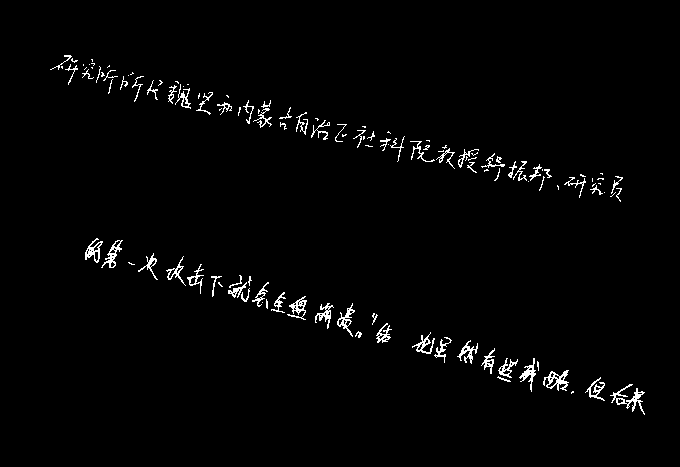 研究所所长魏坚和内蒙古自治区社科院教授舒振邦、研究员
的第一次攻击下就会全盘崩溃。”结 也虽然有些战略,但后果